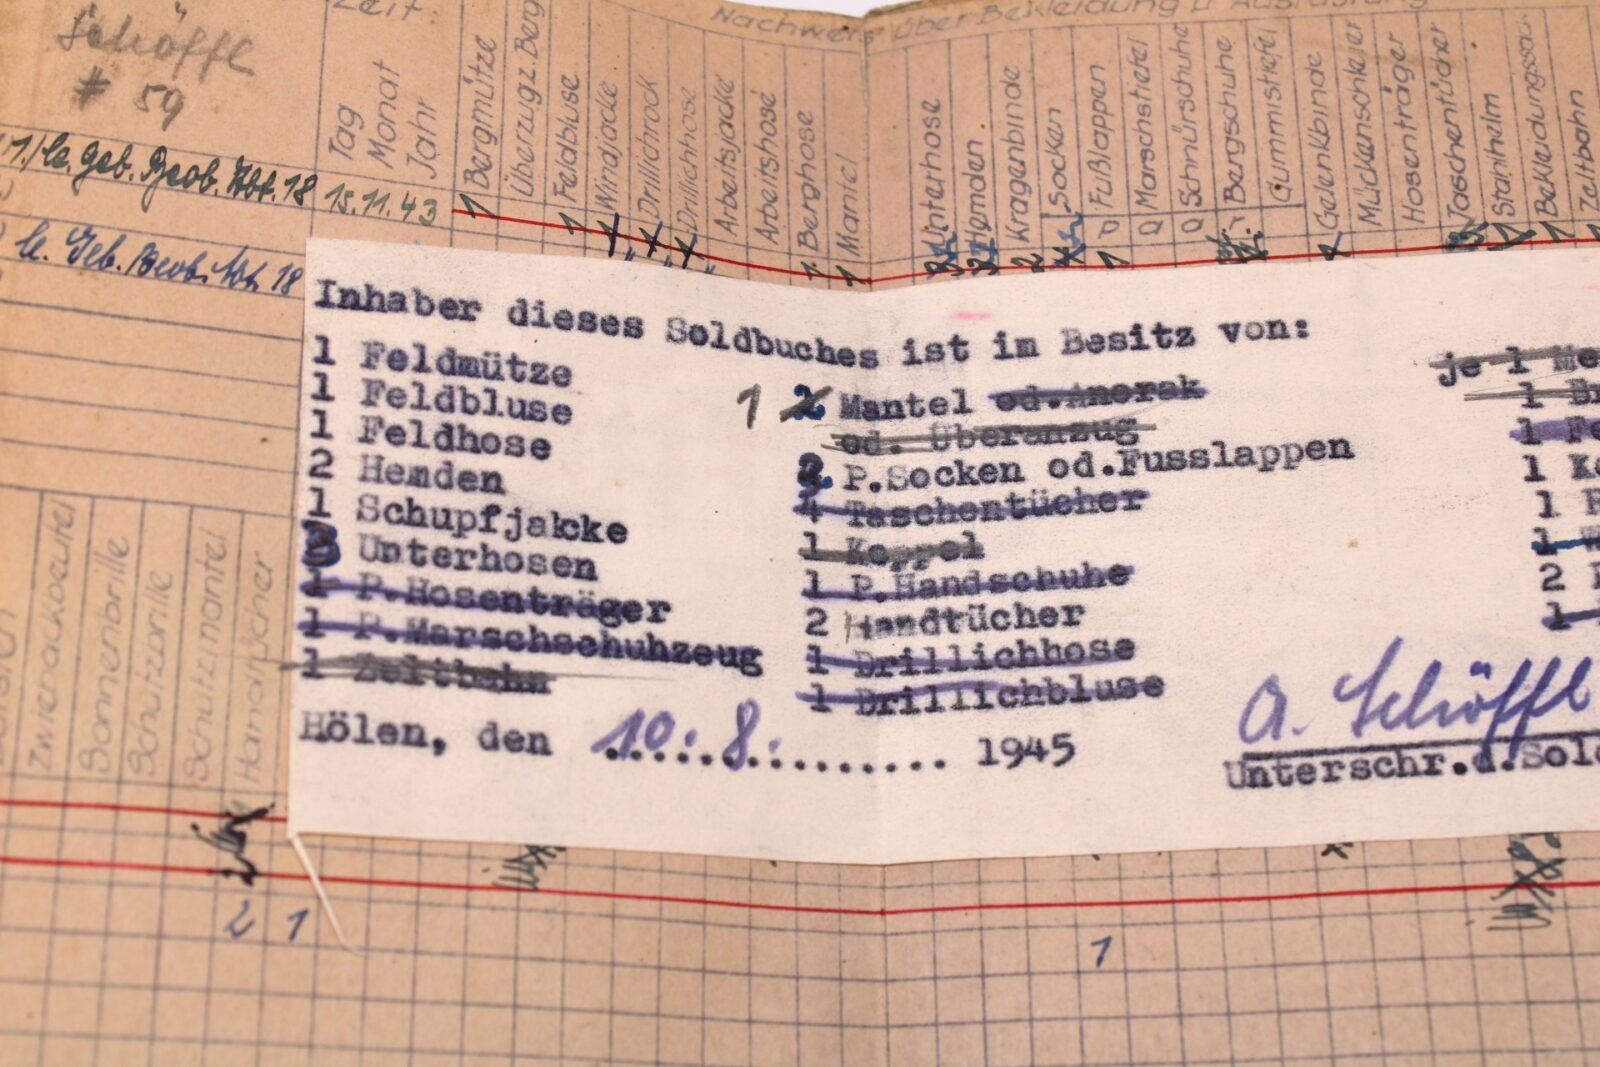 Nachweis über Bekleidung u. Ausrüstung
Zeit:
Schöffl
# 59
Tag
Monat
Jahr
Bergmütze
Überzug z. Berg
Feldbluse
Windjacke
Drillichrock
Drillichhose
Arbeitsjacke
Arbeitshose
Berghose
Mantel
Unterhose
Hemden
Kragenbinde
Socken
Fußlappen
Marschstiefel
Schnürschuhe
Bergschuhe
Gummistiefel
Gelenkbinde
Mückenschleier
Hosenträger
Taschentücher
Stahlhelm
Bekleidungssa
Zeltbahn
Abt. 18 15.11.43
18
Inhaber dieses Soldbuches ist im Besitz von:
1 Feldmütze
1 Feldbluse
1 Feldhose
2 Hemden
1 Schupfjakcke
3 Unterhosen
1 P.Hosenträger
1 P.Marschschuhzeug
1 Zeltbahn
1 2 Mantel od.Anorak
od. Überanzug
P.Socken od.Fusslappen
4 Taschentücher
1 Koppel
1 P.Handschuhe
2 Handtücher
1 Drillichhose
1 Drillichbluse
je 1 Me
1 B
1 Fe
1 K
1
1
2
1
Hölen, den 10. 8. 1945
A. Schöffl
Unterschr.d.Sol
Zwiebackbeutel
Sonnenbrille
Schutzbrille
Schutzmantel
Handtücher
2 1
1